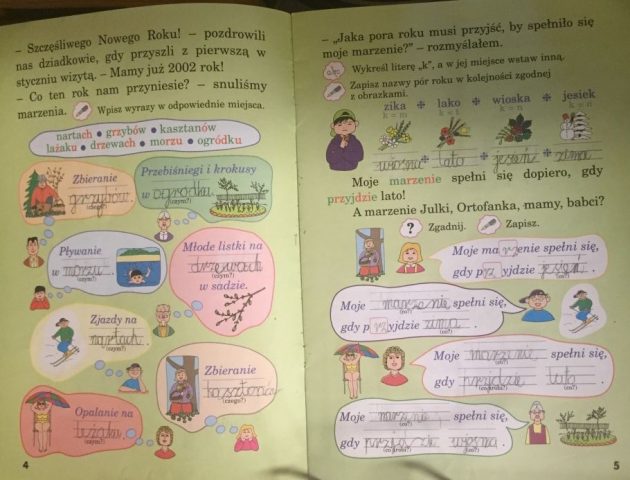 – Szczęśliwego Nowego Roku! – pozdrowili
nas dziadkowie, gdy przyszli z pierwszą w
styczniu wizytą. – Mamy już 2002 rok!
– Co ten rok nam przyniesie? – snuliśmy
marzenia.
Wpisz wyrazy w odpowiednie miejsca.
nartach • grzybów • kasztanów
leżaku • drzewach • morzu • ogródku
Zbieranie
grzybów.
(czego?)
Przebiśniegi i krokusy
w ogródku.
(czym?)
Pływanie
w morzu.
(czym?)
Młode listki na
drzewach
(czym?)
w sadzie.
Zjazdy na
nartach.
(czym?)
Zbieranie
kasztanów
(czego?)
Opalanie na
leżaku.
(czym?)
4
– „Jaka pora roku musi przyjść, by spełniło się
moje marzenie?” – rozmyślałem.
Wykreśl literę „k”, a w jej miejsce wstaw inną.
Zapisz nazwy pór roku w kolejności zgodnej
z obrazkami.
zika ❉ lako ❉ wioska ❉ jesiek
k = m k = t k = n k = n
wiosna + lato + jesień + zima
Moje marzenie spełni się dopiero, gdy
przyjdzie lato!
A marzenie Julki, Ortofanka, mamy, babci?
? Zgadnij. Zapisz.
Moje marzenie spełni się,
gdy przyjdzie jesień.
(co?)
Moje marzenie spełni się,
(co?)
gdy przyjdzie zima.
(co?)
Moje marzenie spełni się,
(co?)
gdy przyjdzie lato.
(co zrobi?) (co?)
Moje marzenie spełni się,
(co?)
gdy przyjdzie wiosna.
(co zrobi?) (co?)
5